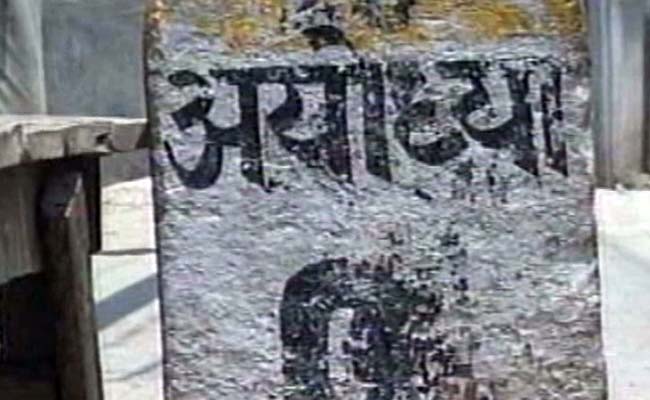 अयोध्या
0